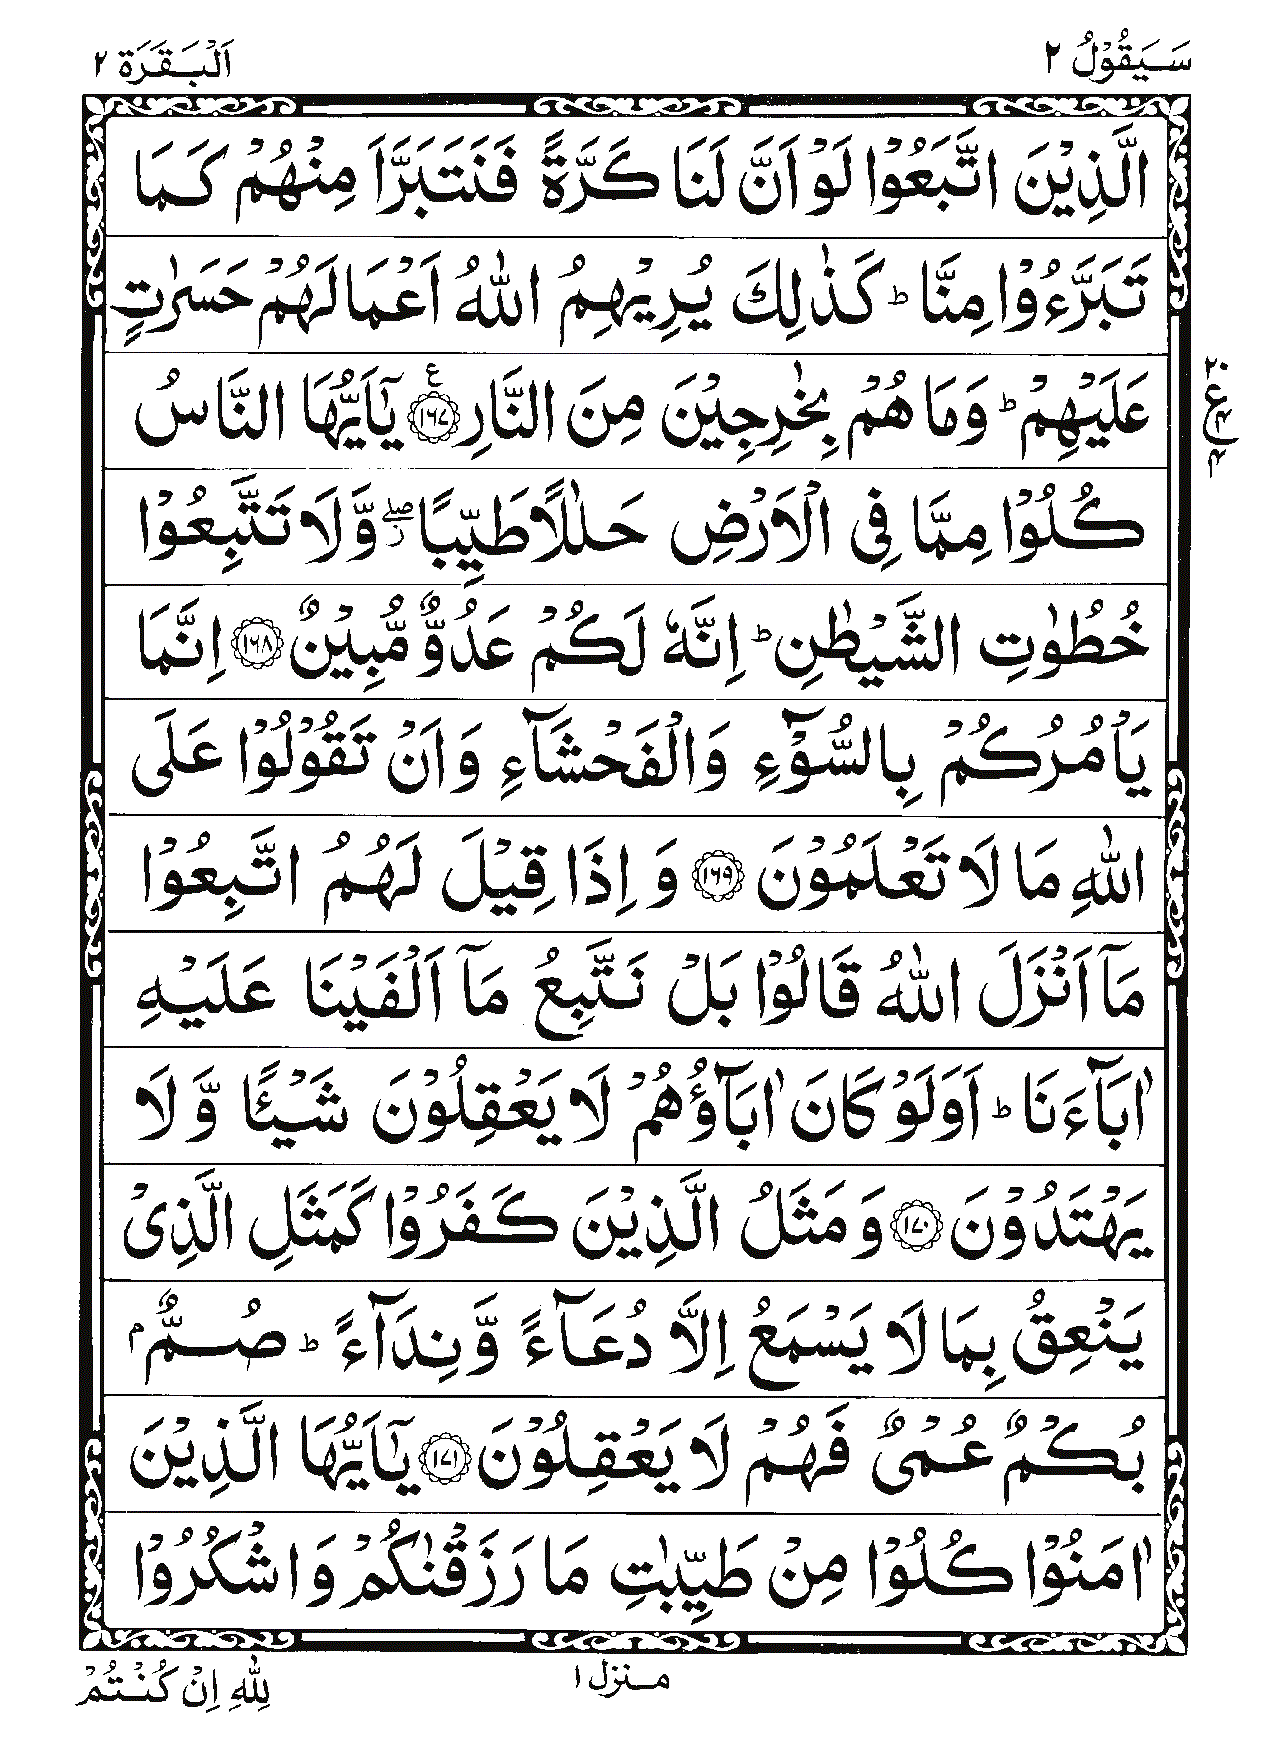 سَيَقُوْلُ ٢
اَلْبَقَرَة ٢
الَّذِيْنَ اتَّبَعُوْا لَوْ اَنَّ لَنَا كَرَّةً فَنَتَبَرَّاَ مِنْهُمْ كَمَا
تَبَرَّءُوْا مِنَّا ؕ كَذٰلِكَ يُرِيْهِمُ اللّٰهُ اَعْمَالَهُمْ حَسَرٰتٍ
عَلَيْهِمْ ؕ وَمَا هُمْ بِخٰرِجِيْنَ مِنَ النَّارِ ۧ ﴿١٦٧﴾ يٰۤاَيُّهَا النَّاسُ
٢٠ ع ٤ ٤
كُلُوْا مِمَّا فِى الْاَرْضِ حَلٰلًا طَيِّبًا ۖ ز وَّلَا تَتَّبِعُوْا
خُطُوٰتِ الشَّيْطٰنِ ؕ اِنَّهٗ لَكُمْ عَدُوٌّ مُّبِيْنٌ ﴿١٦٨﴾ اِنَّمَا
يَاْمُرُكُمْ بِالسُّوْٓءِ وَالْفَحْشَآءِ وَاَنْ تَقُوْلُوْا عَلَى
اللّٰهِ مَا لَا تَعْلَمُوْنَ ﴿١٦٩﴾ وَ اِذَا قِيْلَ لَهُمُ اتَّبِعُوْا
مَاۤ اَنْزَلَ اللّٰهُ قَالُوْا بَلْ نَتَّبِعُ مَاۤ اَلْفَيْنَا عَلَيْهِ
اٰبَآءَنَا ؕ اَوَلَوْ كَانَ اٰبَآؤُهُمْ لَا يَعْقِلُوْنَ شَيْئًا وَّ لَا
يَهْتَدُوْنَ ﴿١٧٠﴾ وَ مَثَلُ الَّذِيْنَ كَفَرُوْا كَمَثَلِ الَّذِىْ
يَنْعِقُ بِمَا لَا يَسْمَعُ اِلَّا دُعَآءً وَّنِدَآءً ؕ صُمٌّۢ
بُكْمٌ عُمْىٌ فَهُمْ لَا يَعْقِلُوْنَ ﴿١٧١﴾ يٰۤاَيُّهَا الَّذِيْنَ
اٰمَنُوْا كُلُوْا مِنْ طَيِّبٰتِ مَا رَزَقْنٰكُمْ وَ اشْكُرُوْا
منزل ١
لِلّٰهِ اِنْ كُنْتُمْ